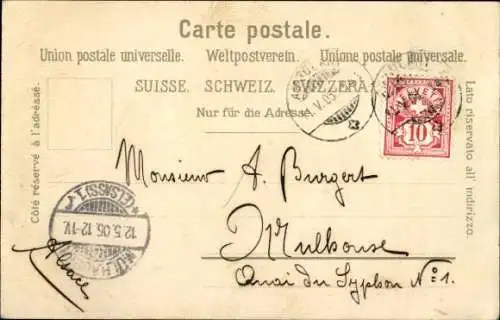 Carte postale.
Union postale universelle. Weltpostverein. Unione postale universale.
SUISSE. SCHWEIZ. SVIZZERA.
Nur für die Adresse
Côté réservé à l'adresse.
Lato riservato all' indirizzo.
HELVETIA
10
Monsieur A. Burgert
Mulhouse
Quai du Syphon No 1.
Alsace
(ELSASS) 1
12.5.05.12-1V.